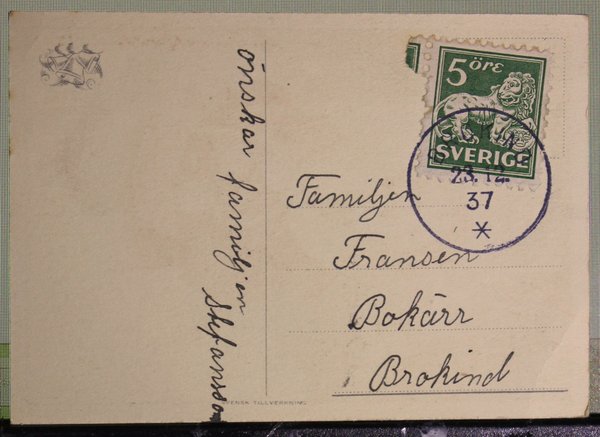 önskar familjen
Stefansson
5 öre
SVERIGE
23.12.
37
*
Familjen
Fransén
Bokärr
Brokind
SVENSK TILLVERKNING